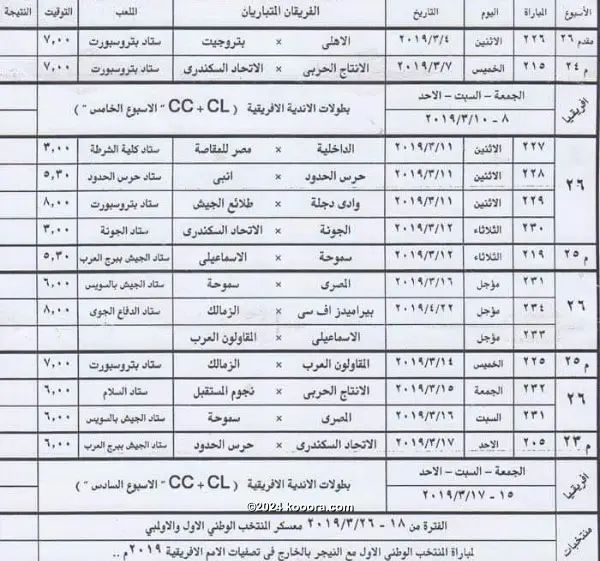 الأسبوع المباراة اليوم التاريخ الفريقان المتباريان الملعب التوقيت النتيجة
مقدم ٢٦ ٢٢٦ الاثنين ٢٠١٩/٣/٤ الاهلى × بتروجيت ستاد بتروسبورت ٧,٠٠
م ٢٤ ٢١٥ الخميس ٢٠١٩/٣/٧ الانتاج الحربى × الاتحاد السكندرى ستاد بتروسبورت ٧,٠٠
افريقيا الجمعة - السبت - الاحد بطولات الاندية الافريقية ( CC + CL " الاسبوع الخامس " )
٨ - ٢٠١٩/٣/١٠
٢٦ ٢٢٧ الاثنين ٢٠١٩/٣/١١ الداخلية × مصر للمقاصة ستاد كلية الشرطة ٣,٠٠
٢٢٨ الاثنين ٢٠١٩/٣/١١ حرس الحدود × انبى ستاد حرس الحدود ٥,٣٠
٢٢٩ الاثنين ٢٠١٩/٣/١١ وادى دجلة × طلائع الجيش ستاد بتروسبورت ٨,٠٠
٢٣٠ الثلاثاء ٢٠١٩/٣/١٢ الجونة × الاتحاد السكندرى ستاد الجونة ٣,٠٠
م ٢٥ ٢١٩ الثلاثاء ٢٠١٩/٣/١٢ سموحة × الاسماعيلى ستاد الجيش ببرج العرب ٥,٣٠
٢٦ ٢٣١ مؤجل ٢٠١٩/٣/١٦ المصرى × سموحة ستاد الجيش بالسويس ٦,٠٠
٢٣٤ مؤجل ٢٠١٩/٤/٢٢ بيراميدز اف سى × الزمالك ستاد الدفاع الجوى ٨,٠٠
٢٣٣ مؤجل الاسماعيلى × المقاولون العرب
م ٢٥ ٢٢٥ الخميس ٢٠١٩/٣/١٤ المقاولون العرب × الزمالك ستاد بتروسبورت ٧,٠٠
٢٦ ٢٣٢ الجمعة ٢٠١٩/٣/١٥ الانتاج الحربى × نجوم المستقبل ستاد السلام ٦,٠٠
٢٣١ السبت ٢٠١٩/٣/١٦ المصرى × سموحة ستاد الجيش بالسويس ٦,٠٠
م ٢٣ ٢٠٥ الاحد ٢٠١٩/٣/١٧ الاتحاد السكندرى × حرس الحدود ستاد الجيش ببرج العرب ٦,٠٠
افريقيا الجمعة - السبت - الاحد بطولات الاندية الافريقية ( CC + CL " الاسبوع السادس " )
١٥ - ٢٠١٩/٣/١٧
©2024 kooora.com
منتخبات الفترة من ١٨ - ٢٠١٩/٣/٢٦ معسكر المنتخب الوطني الاول والاولمبي
لمباراة المنتخب الوطني الاول مع النيجر بالخارج فى تصفيات الامم الافريقية ٢٠١٩م ..